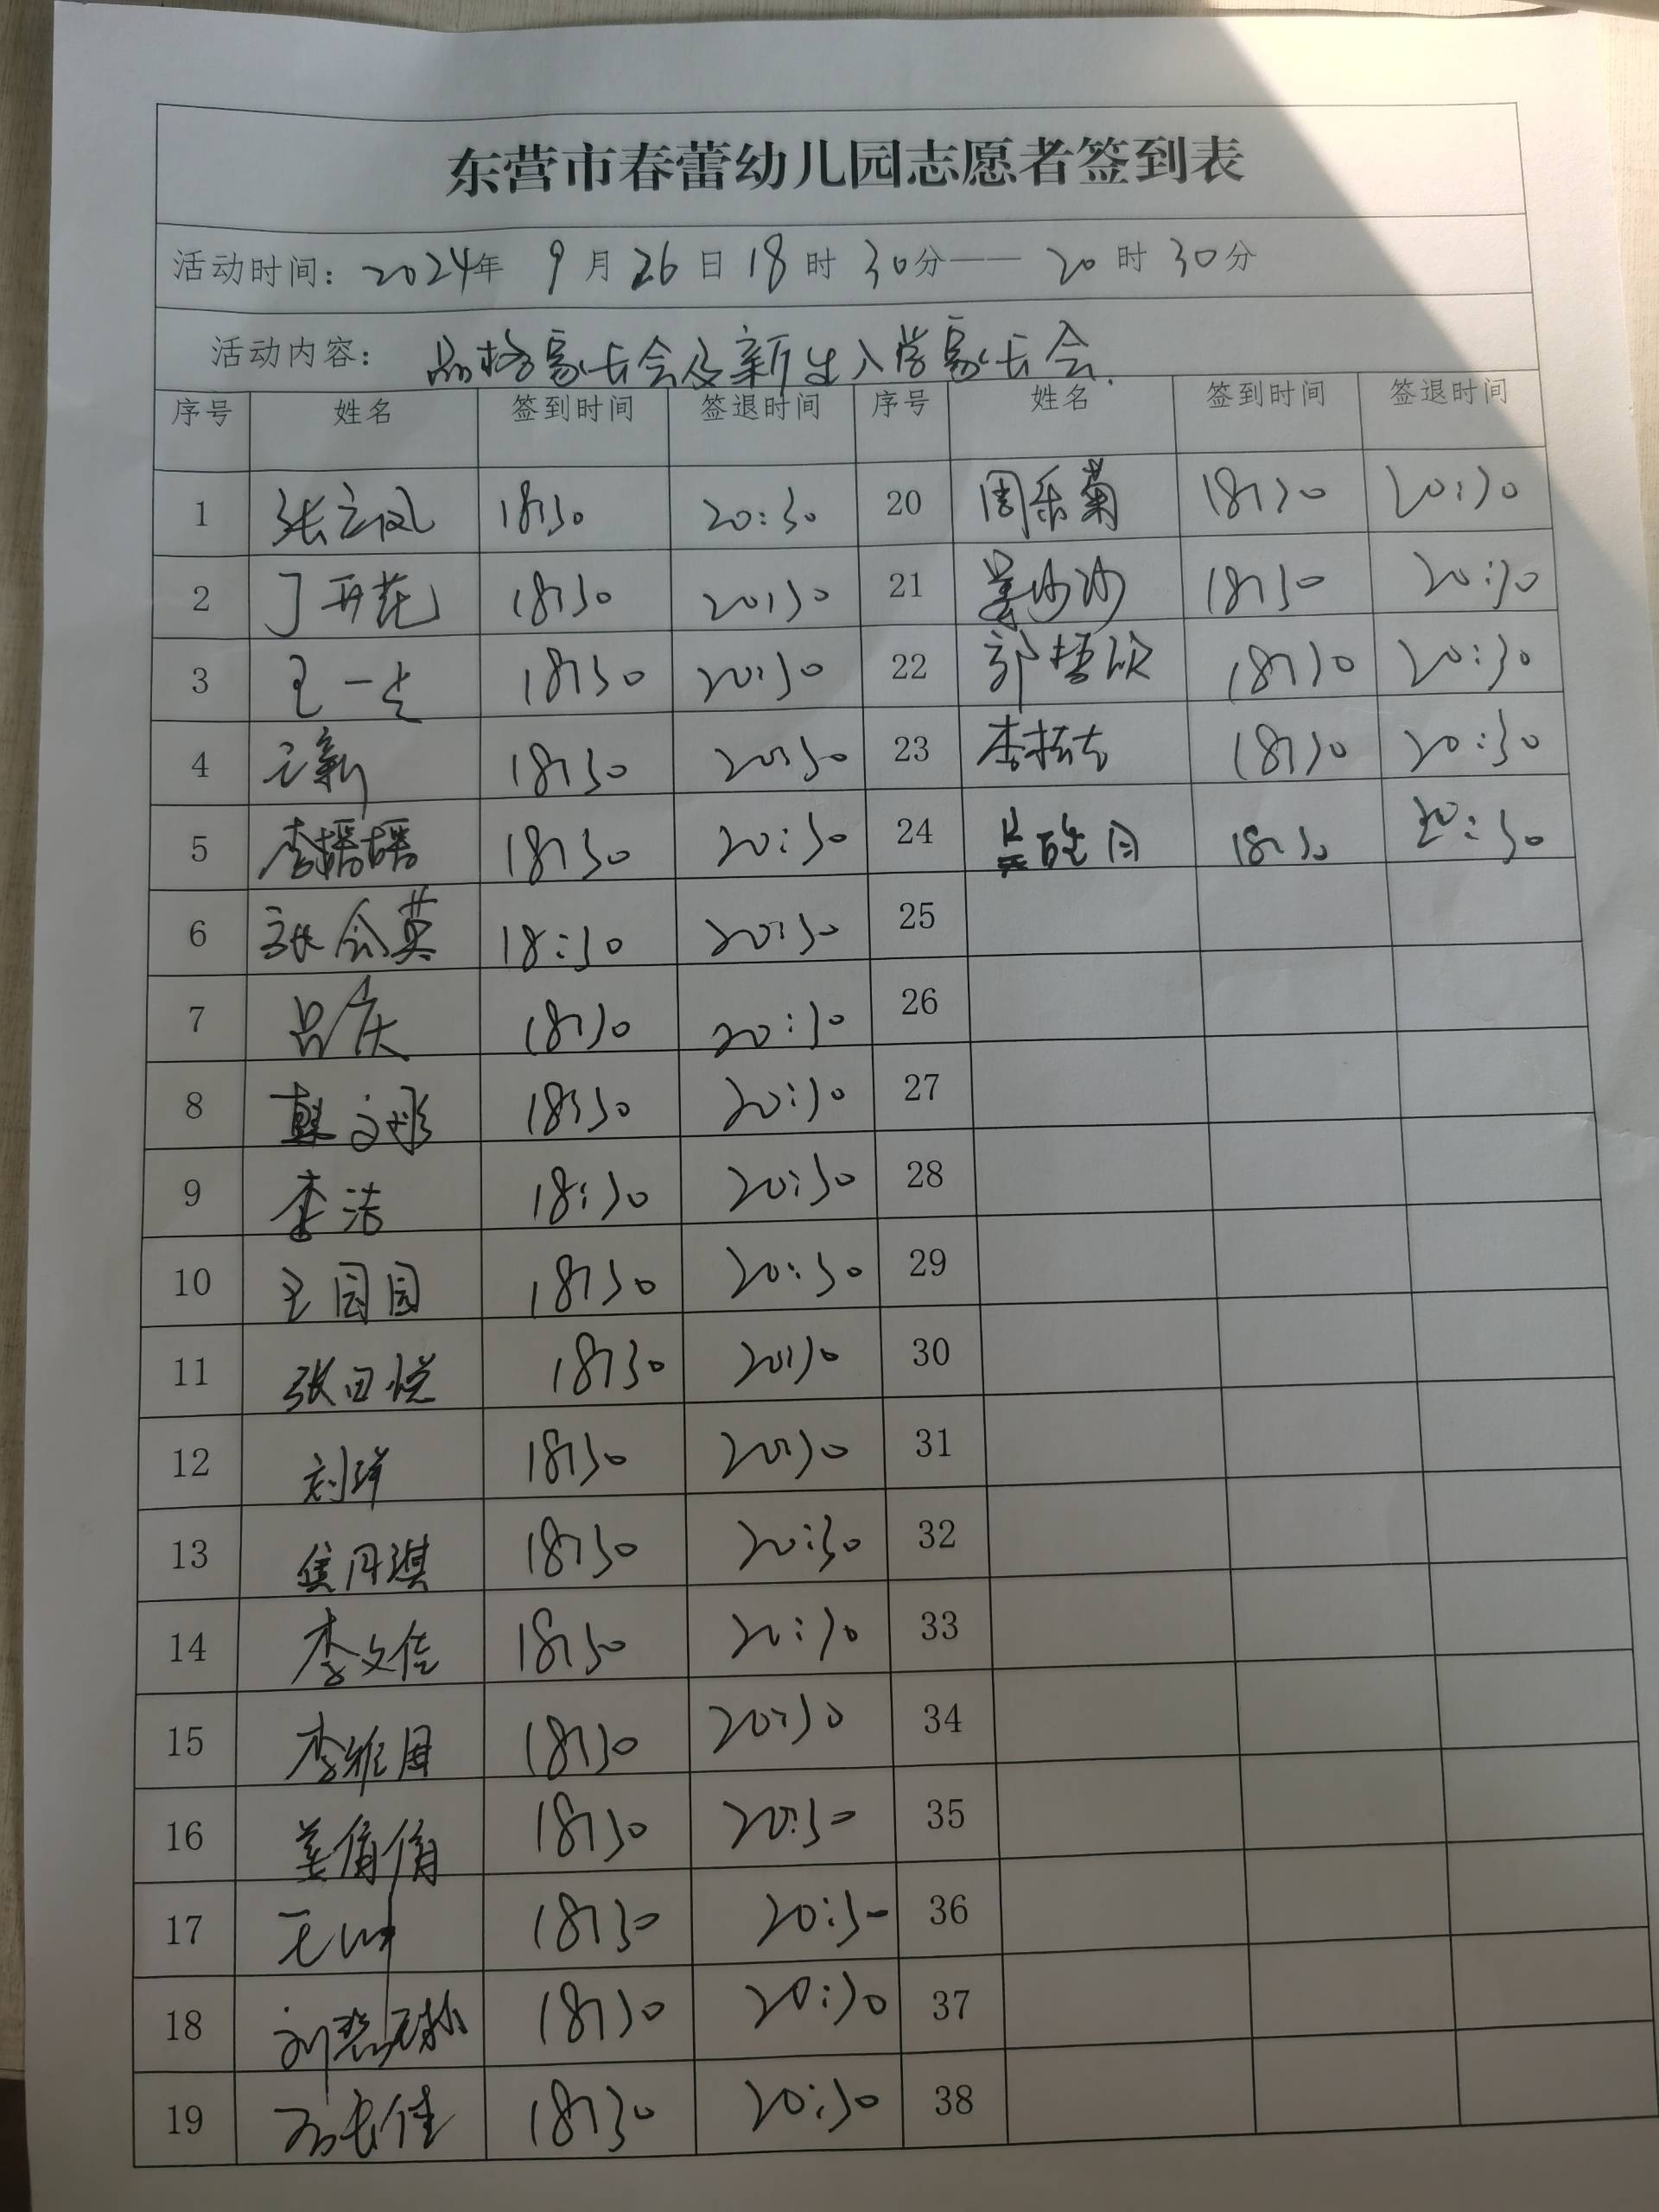 东营市春蕾幼儿园志愿者签到表
活动时间：2024年 9月26日18时30分——20时30分
活动内容：品格家长会及新生入学家长会.
序号 姓名 签到时间 签退时间 序号 姓名 签到时间 签退时间
1 张立凤 18:30 20:30 20 周乐菊 18:30 20:30
2 丁 18:30 20:30 21 姜沙沙 18:30 20:30
3 王一 18:30 20:30 22 郭 18:30 20:30
4 王新 18:30 20:30 23 李 18:30 20:30
5 李播播 18:30 20:30 24 18:30 20:30
6 张会英 18:30 20:30 25
7 吕庆 18:30 20:30 26
8 韩文彤 18:30 20:30 27
9 李洁 18:30 20:30 28
10 王园园 18:30 20:30 29
11 张田悦 18:30 20:30 30
12 刘洋 18:30 20:30 31
13 侯月琪 18:30 20:30 32
14 李文佳 18:30 20:30 33
15 李雅 18:30 20:30 34
16 姜倩倩 18:30 20:30 35
17 18:30 20:30 36
18 刘 18:30 20:30 37
19 18:30 20:30 38